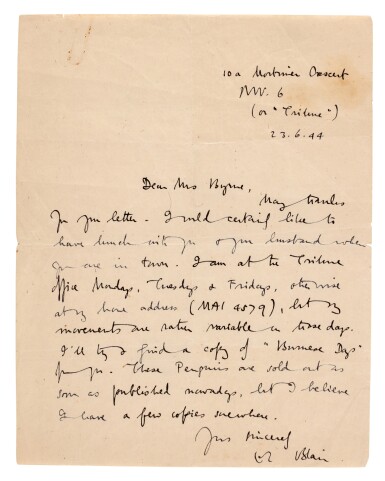 10a Mortimer Crescent
NW. 6
(or "Tribune")
23.6.44
Dear Mrs Byrne,
Many thanks
for your letter. I would certainly like to
have lunch with you & your husband when
you are in town. I am at the Tribune
office Mondays, Tuesdays & Fridays, otherwise
at my home address (MAI 4579), but my
movements are rather variable in these days.
I'll try & find a copy of "Burmese Days"
for you. These Penguins are sold out as
soon as published nowadays, but I believe
I have a few copies somewhere.
Yours sincerely
Blair